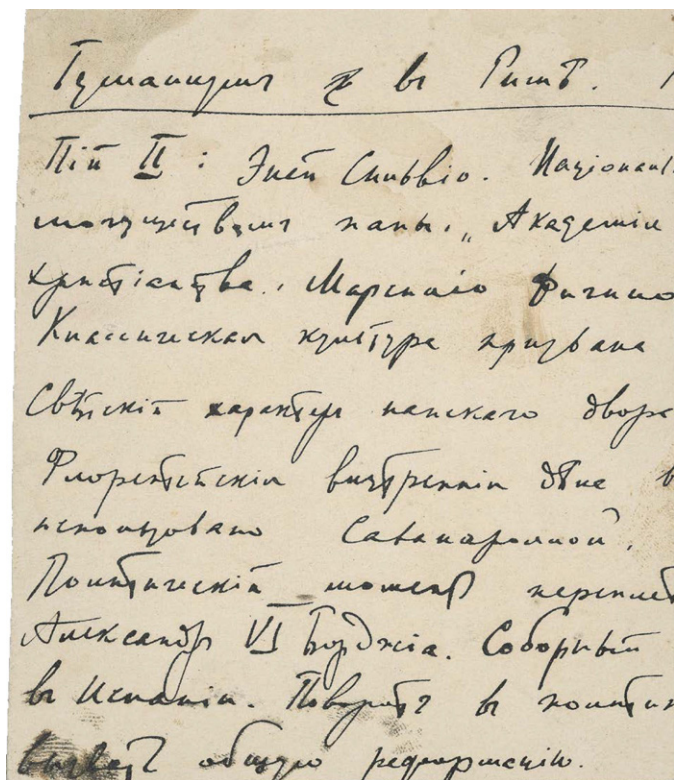 Гуманизмъ въ Римѣ.
Пій II: Эней Сильвіо. Націонал
могуществомъ папы. „Академія
христіанства. Марсиліо Фичино
Классическая культура призвана
Свѣтскій характеръ папскаго двора
Флорентійскія внутреннія дѣла в
использовано Саванароллой.
Политическій моментъ переплет
Александръ VI Борджіа. Соборный
въ Испаніи. Поворотъ въ полити
общую реформацію.